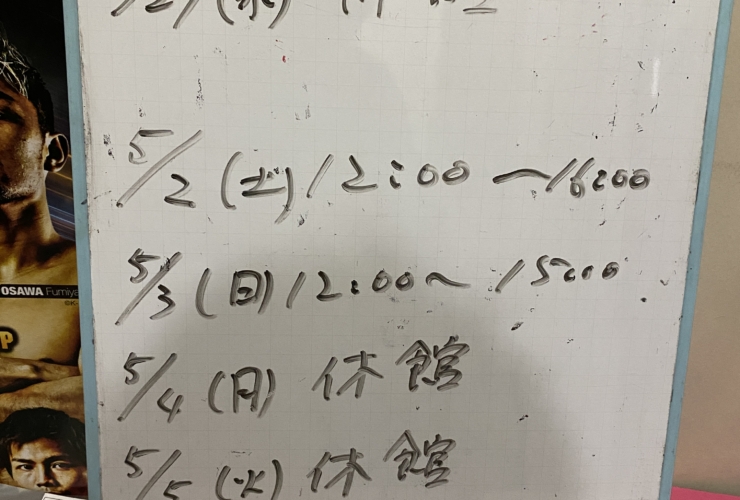 5/2(土)12:00〜16:00
5/3(日)12:00〜15:00
5/4(月)休館
5/5(火)休館
OSAWA Fumiya